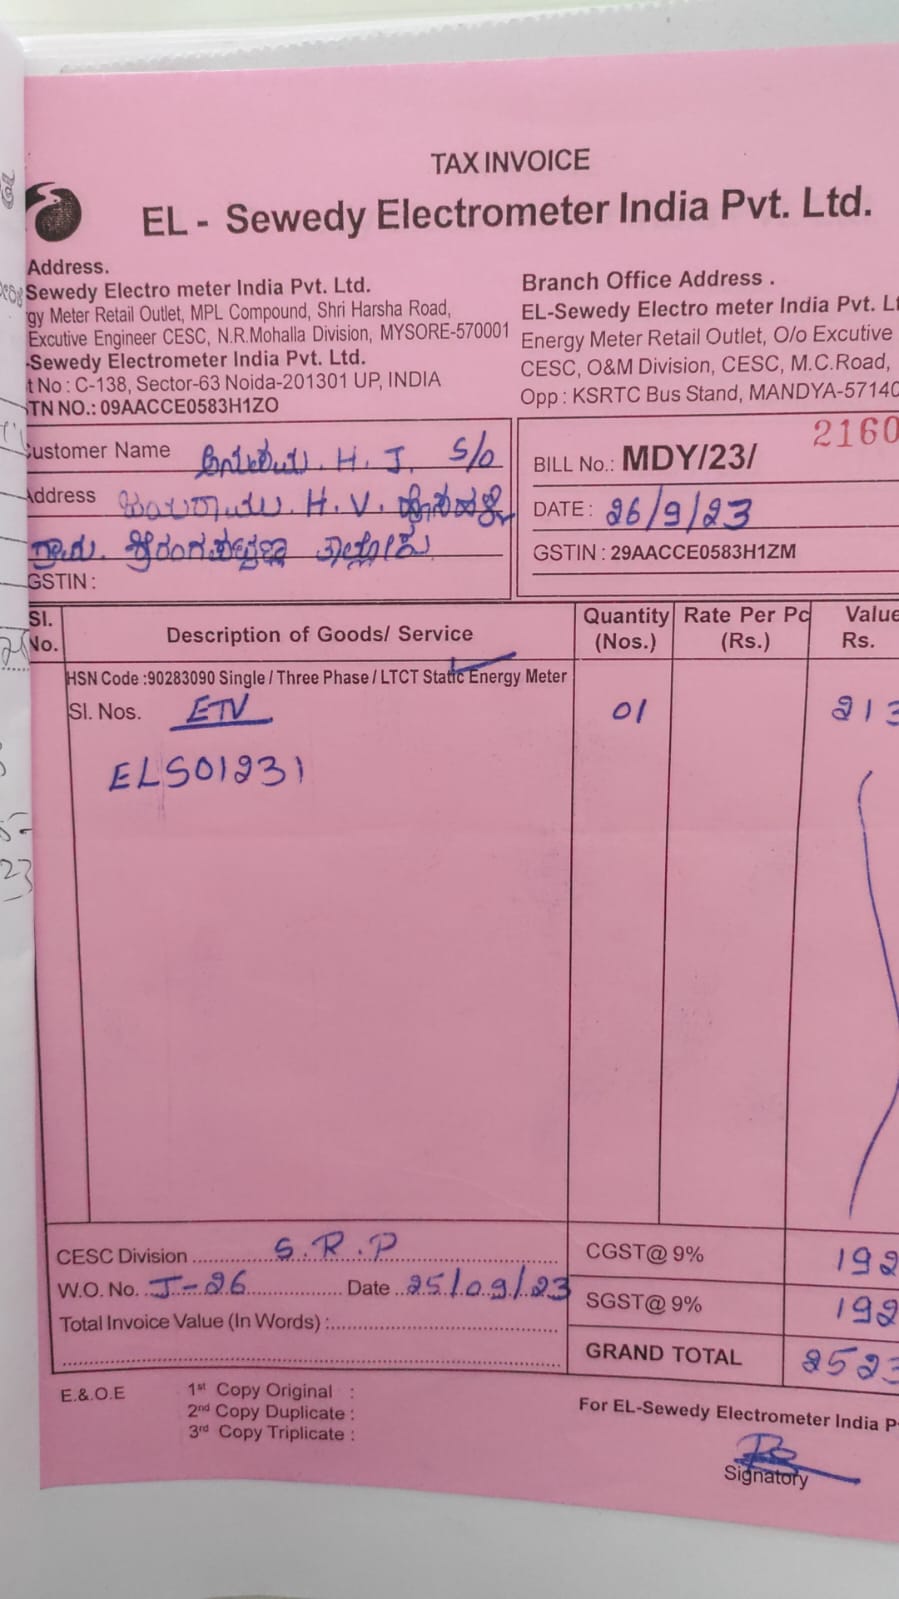 TAX INVOICE
EL - Sewedy Electrometer India Pvt. Ltd.
Address.
Sewedy Electro meter India Pvt. Ltd.
gy Meter Retail Outlet, MPL Compound, Shri Harsha Road,
Excutive Engineer CESC, N.R.Mohalla Division, MYSORE-570001
-Sewedy Electrometer India Pvt. Ltd.
t No : C-138, Sector-63 Noida-201301 UP, INDIA
TN NO.: 09AACCE0583H1ZO
Branch Office Address .
EL-Sewedy Electro meter India Pvt. Lt
Energy Meter Retail Outlet, O/o Excutive
CESC, O&M Division, CESC, M.C.Road,
Opp : KSRTC Bus Stand, MANDYA-57140
ustomer Name H. J. S/O
Address H. V.
GSTIN :
2160
BILL No.: MDY/23/
DATE : 26/9/23
GSTIN : 29AACCE0583H1ZM
Sl. No. Description of Goods/ Service Quantity (Nos.) Rate Per Pc (Rs.) Value Rs.
HSN Code :90283090 Single / Three Phase / LTCT Static Energy Meter
Sl. Nos. ETV 01 213
ELS01231
CESC Division S.R.P
W.O. No. J-26 Date 25/09/23
Total Invoice Value (In Words) :
CGST@ 9% 192
SGST@ 9% 192
GRAND TOTAL 2523
E.&.O.E
1st Copy Original :
2nd Copy Duplicate :
3rd Copy Triplicate :
For EL-Sewedy Electrometer India P
Signatory